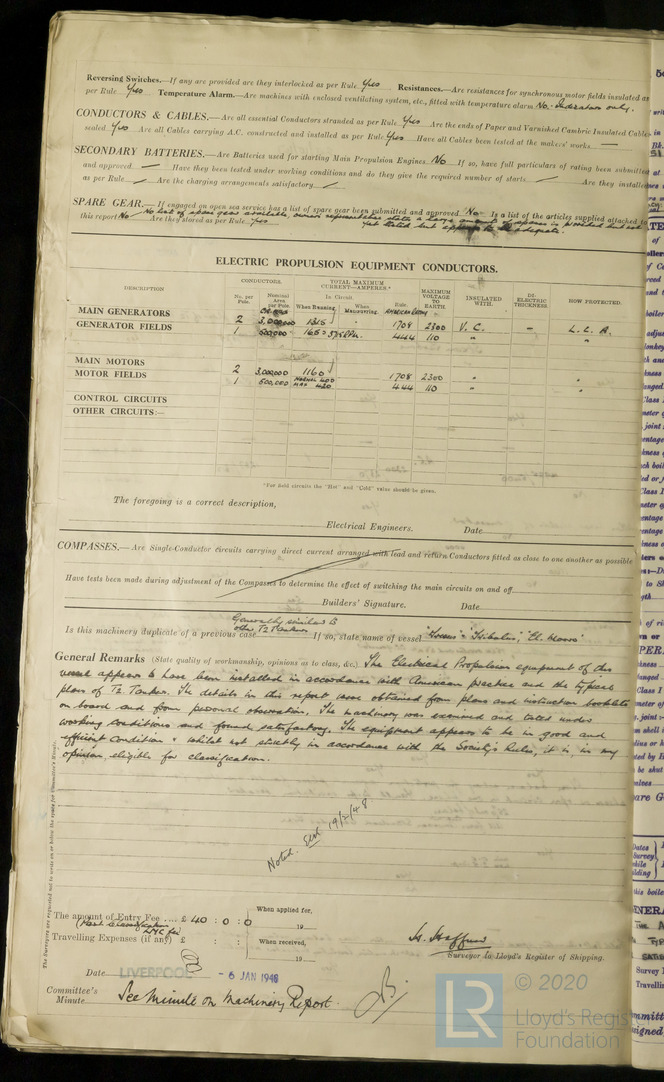 Reversing Switches.—If any are provided are they interlocked as per Rule Yes Resistances.—Are resistances for synchronous motor fields insulated as
per Rule Yes Temperature Alarm.—Are machines with enclosed ventilating system, etc., fitted with temperature alarm No. Indicators only.
CONDUCTORS & CABLES.—Are all essential Conductors stranded as per Rule Yes Are the ends of Paper and Varnished Cambric Insulated Cables
sealed Yes Are all Cables carrying A.C. constructed and installed as per Rule Yes Have all Cables been tested at the makers' works —
SECONDARY BATTERIES.—Are Batteries used for starting Main Propulsion Engines No If so, have full particulars of rating been submitted
and approved — Have they been tested under working conditions and do they give the required number of starts — Are they installed
as per Rule — Are the charging arrangements satisfactory —
SPARE GEAR.—If engaged on open sea service has a list of spare gear been submitted and approved No Is a list of the articles supplied attached to
this report No No list of spare gear available, owners representative states a large amount of spares is provided but not
Are they stored as per Rule Yes yet listed but appears to be adequate.
ELECTRIC PROPULSION EQUIPMENT CONDUCTORS.
DESCRIPTION CONDUCTORS. No. per Pole. Nominal Area per Pole. TOTAL MAXIMUM CURRENT—AMPERES.* In Circuit When Running. When Manœuvring. Rule. MAXIMUM VOLTAGE TO EARTH INSULATED WITH. DI-ELECTRIC THICKNESS. HOW PROTECTED.
MAIN GENERATORS 2 3,000,000 1315 1708 2300 V. C. — L. C. A.
GENERATOR FIELDS 1 500,000 165 444 110 " "
MAIN MOTORS 2 3,000,000 1160 1708 2300 " "
MOTOR FIELDS 1 500,000 NORMAL 400 MAX 420 444 110 " "
CONTROL CIRCUITS
OTHER CIRCUITS:—
*For field circuits the "Hot" and "Cold" value should be given.
The foregoing is a correct description,
Electrical Engineers. Date
COMPASSES.—Are Single-Conductor circuits carrying direct current arranged with lead and return Conductors fitted as close to one another as possible
Have tests been made during adjustment of the Compasses to determine the effect of switching the main circuits on and off
Builders' Signature. Date
Generally similar to
Is this machinery duplicate of a previous case other T2 Tankers If so, state name of vessel
General Remarks (State quality of workmanship, opinions as to class, &c.) The Electrical Propulsion equipment of this
vessel appears to have been installed in accordance with American practice and the typical
plans of T2 Tanker. The details in this report were obtained from plans and instruction booklets
on board and from personal observation. The machinery was examined and tested under
working conditions and found satisfactory. The equipment appears to be in good and
efficient condition & whilst not strictly in accordance with the Society's Rules, it is, in my
opinion, eligible for classification.
Noted 19/2/48
The Surveyors are requested not to write on or below the space for Committee's Minute.
The amount of Entry Fee .... £ 40 : 0 : 0 When applied for,
19
Travelling Expenses (if any) £ : : When received,
19
Surveyor to Lloyd's Register of Shipping.
Date LIVERPOOL - 6 JAN 1948
Committee's
Minute See Minute on Machinery Report.
LR © 2020
Lloyd's Register
Foundation